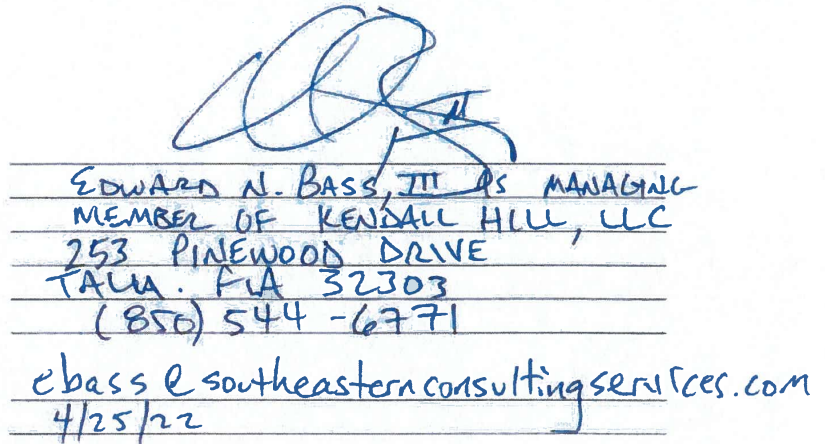 EDWARD N. BASS, III AS MANAGING
MEMBER OF KENDALL HILL, LLC
253 PINEWOOD DRIVE
TALLA. FLA 32303
(850) 544-6771
ebass@southeasternconsultingservices.com
4/25/22